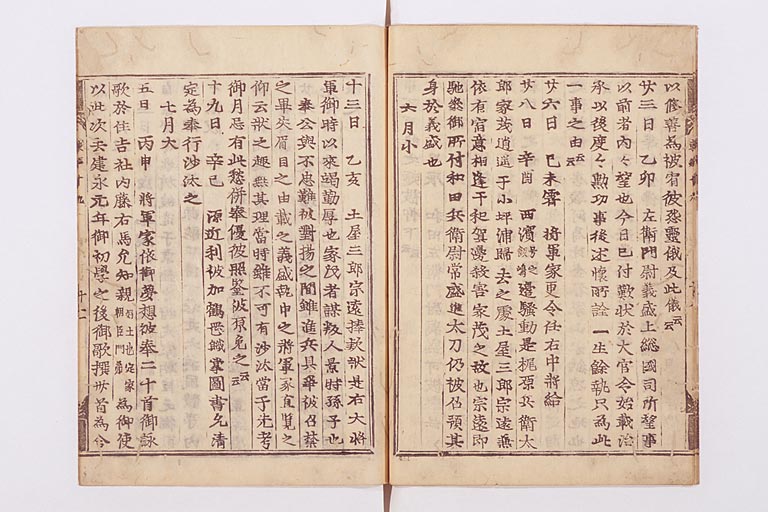 以修善為被宥彼怨霊儀及此儀云云
廿三日 乙卯 左衛門尉義盛上総國司所望事
以前者内々望也今日已付歎状於大官令始載治
承以後度々勲功事後述懐所詮一生餘執只為此
一事之由云云
廿六日 己未 霽 將軍家更令任右中將給
廿八日 辛酉 西濱邊騒動是梶原兵衛太
郎家茂逍遥于小坪浦歸去之處土屋三郎宗遠兼
依有宿意相逢于和賀邊殺害家茂之故也宗遠即
馳参御所付和田兵衛尉常盛進太刀仍被召預其
身於義盛也
六月小
十三日 乙亥 土屋三郎宗遠捧款状其右大將
軍御時以來竭勤厚也家茂者謀叛人景時孫子也
奉公與不忠難被對揚之間雖進兵具畢被召禁
之畢失眉目之由載之義盛執申之將軍家直覧之
仰云状之趣無其理當時雖不可有沙汰當于先考
御月忌有此愁併奉優彼照鑒被原免之云云
十九日 辛巳 源近利被加鶴岳職掌圖書允清
定為奉行沙汰之
七月大
五日 丙申 將軍家依御夢想被奉二十首御詠
歌於住吉社内藤右馬允知親好士也定家朝臣門弟為御使
以此次去建永元年御初學之後御歌撰卅首為合